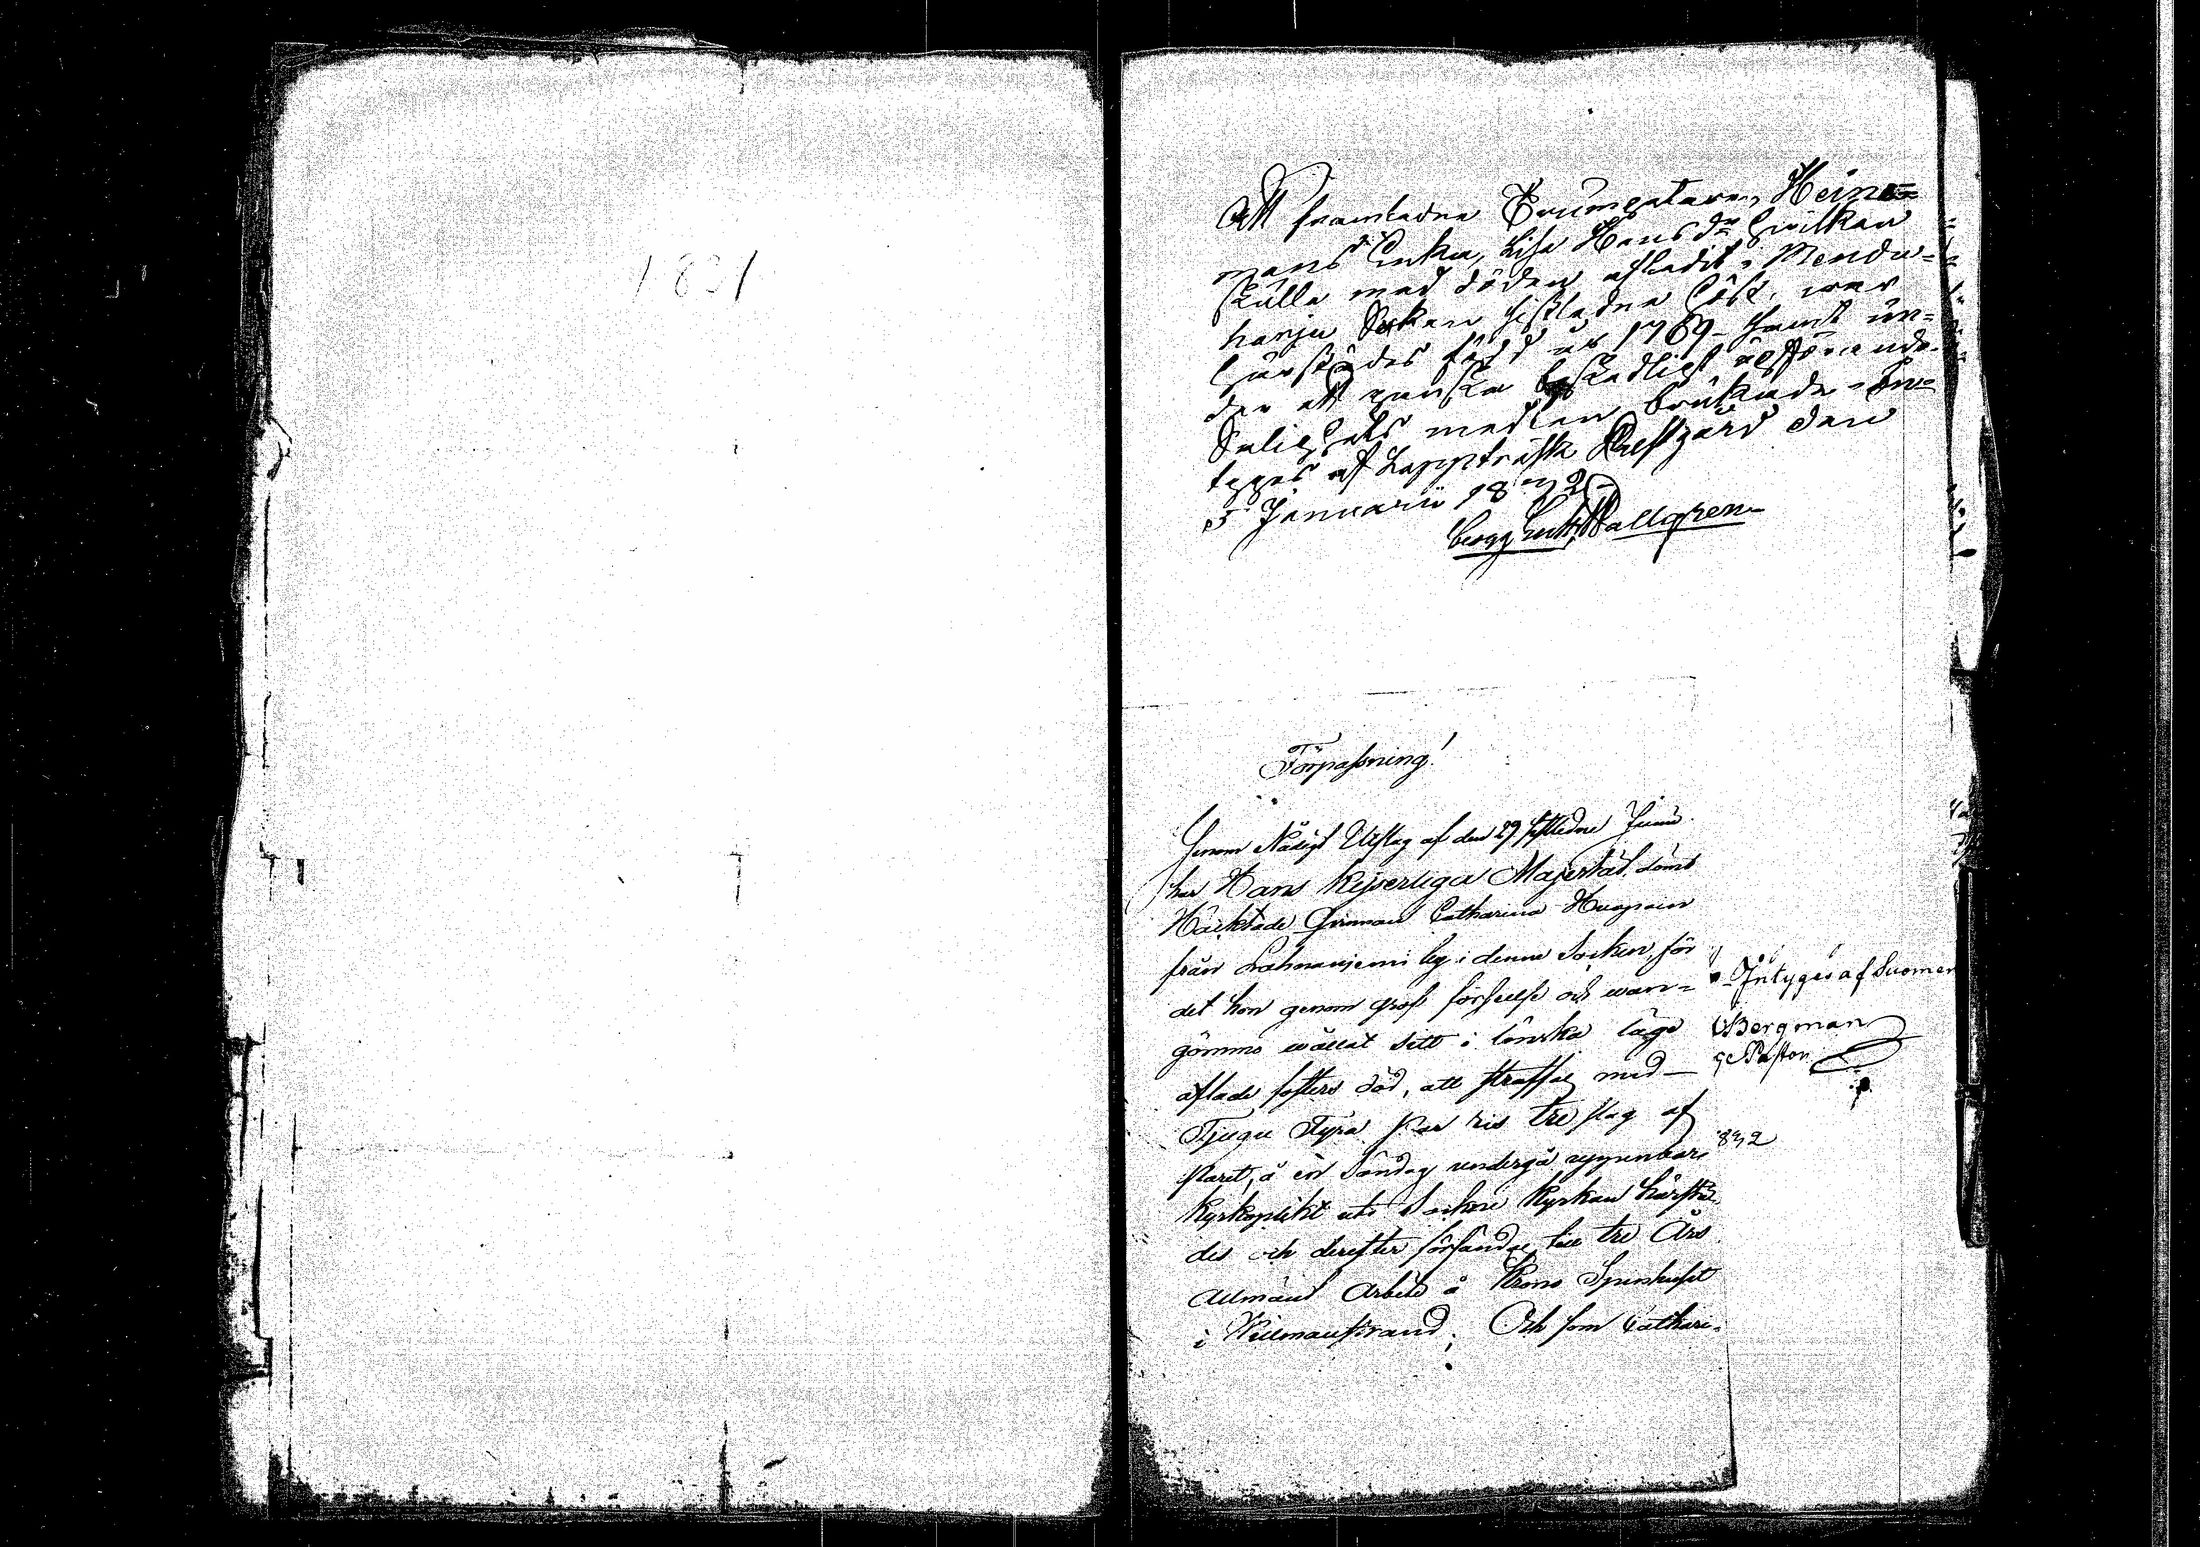 1831
Att framledne Trumpetaren Heine-
mans Enka, Lisa Hansdr hvilken
skulle med döden aflidit i Mendu-
harju Sokn sistledne höst, war
härstädes född år 1769 samt un-
der
Salighets medlen brukade in-
tygas af Lappträsk Prestgård den
5 Januarii 1832
Wallgren
Förpassning!
Genom Nådigt Utslag af den 29 sistledne Junii
har Hans Kejserliga Majestät dömt
Häcktade Qvinnan Catharina
från by i denna Socken, för
det hon genom grof förseelse och wan-
gömmo wållat sitt i lönska läge
aflade fosters död, att straffas med
Tjugu Fyra Par ris tre slag af
Paret, å en Söndag undergå uppenbar
Kyrkoplikt uti Socken Kyrkan härstä-
des och derefter försändas till tre Års
Allmänt Arbete å Krono Spinhuset
i Willmanstrand; Och som Cathari-
Intygas af Suomen
Bergman
Pastor
832